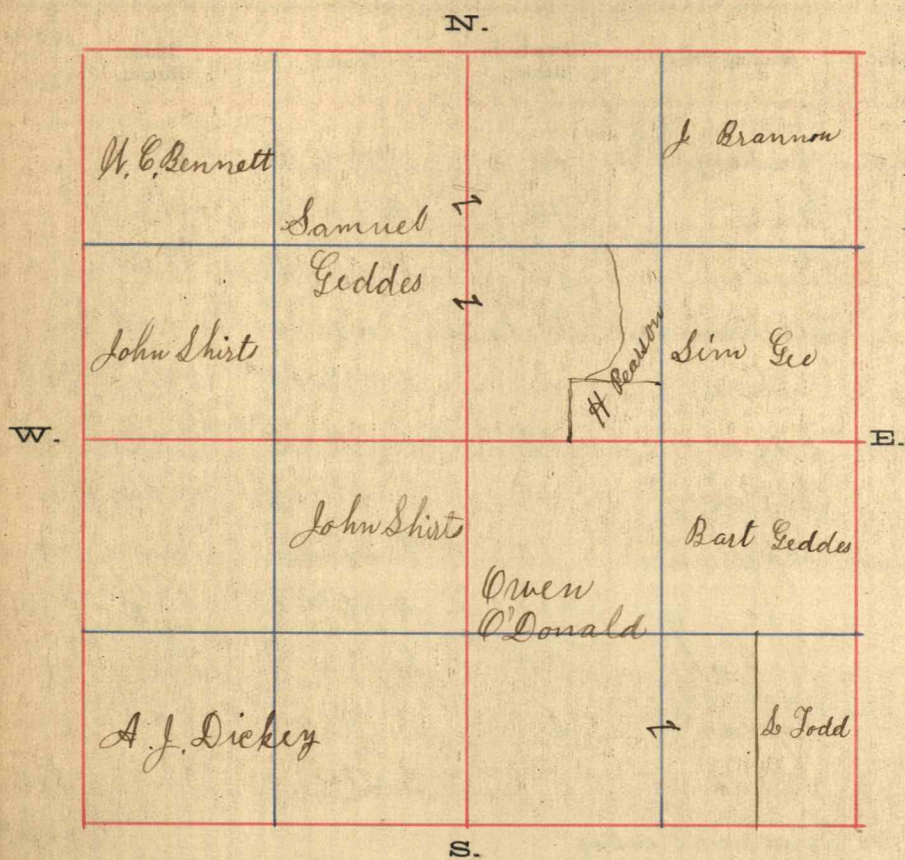 N.
W. C. Bennett
J Brannon
Samuel
Geddes
John Shirts
H Pearson
Sim Gee
W.
E.
John Shirts
Bart Geddes
Owen
O'Donald
A. J. Dickey
S Todd
S.